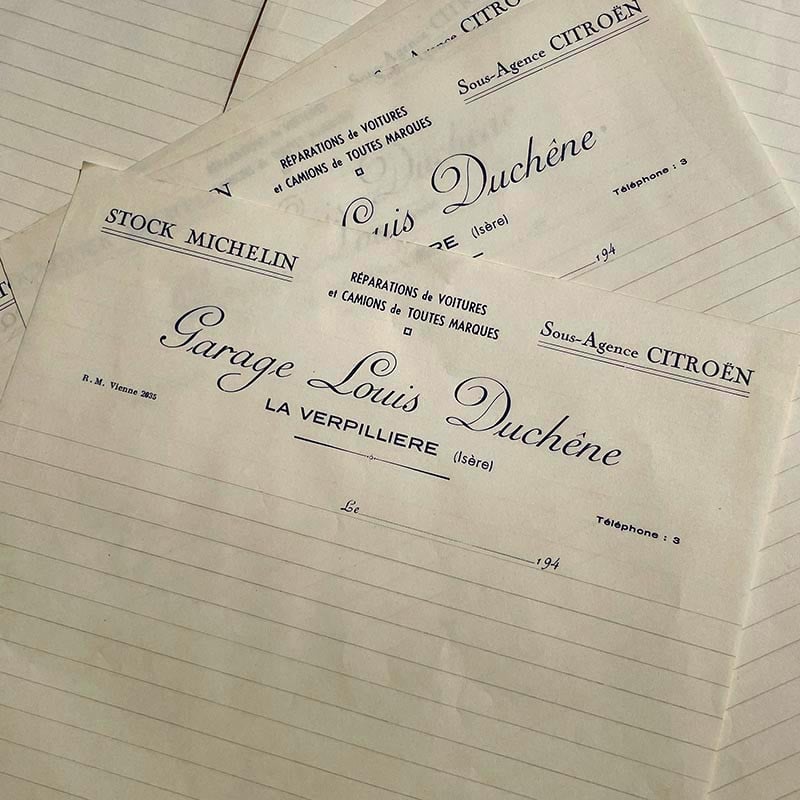 Sous-Agence CITROËN
RÉPARATIONS de VOITURES
et CAMIONS de TOUTES MARQUES
Louis Duchêne
(Isère)
Téléphone : 3
194
STOCK MICHELIN
RÉPARATIONS de VOITURES
et CAMIONS de TOUTES MARQUES
Sous-Agence CITROËN
Garage Louis Duchêne
R. M. Vienne 2035
LA VERPILLIERE (Isère)
Téléphone : 3
Le
194